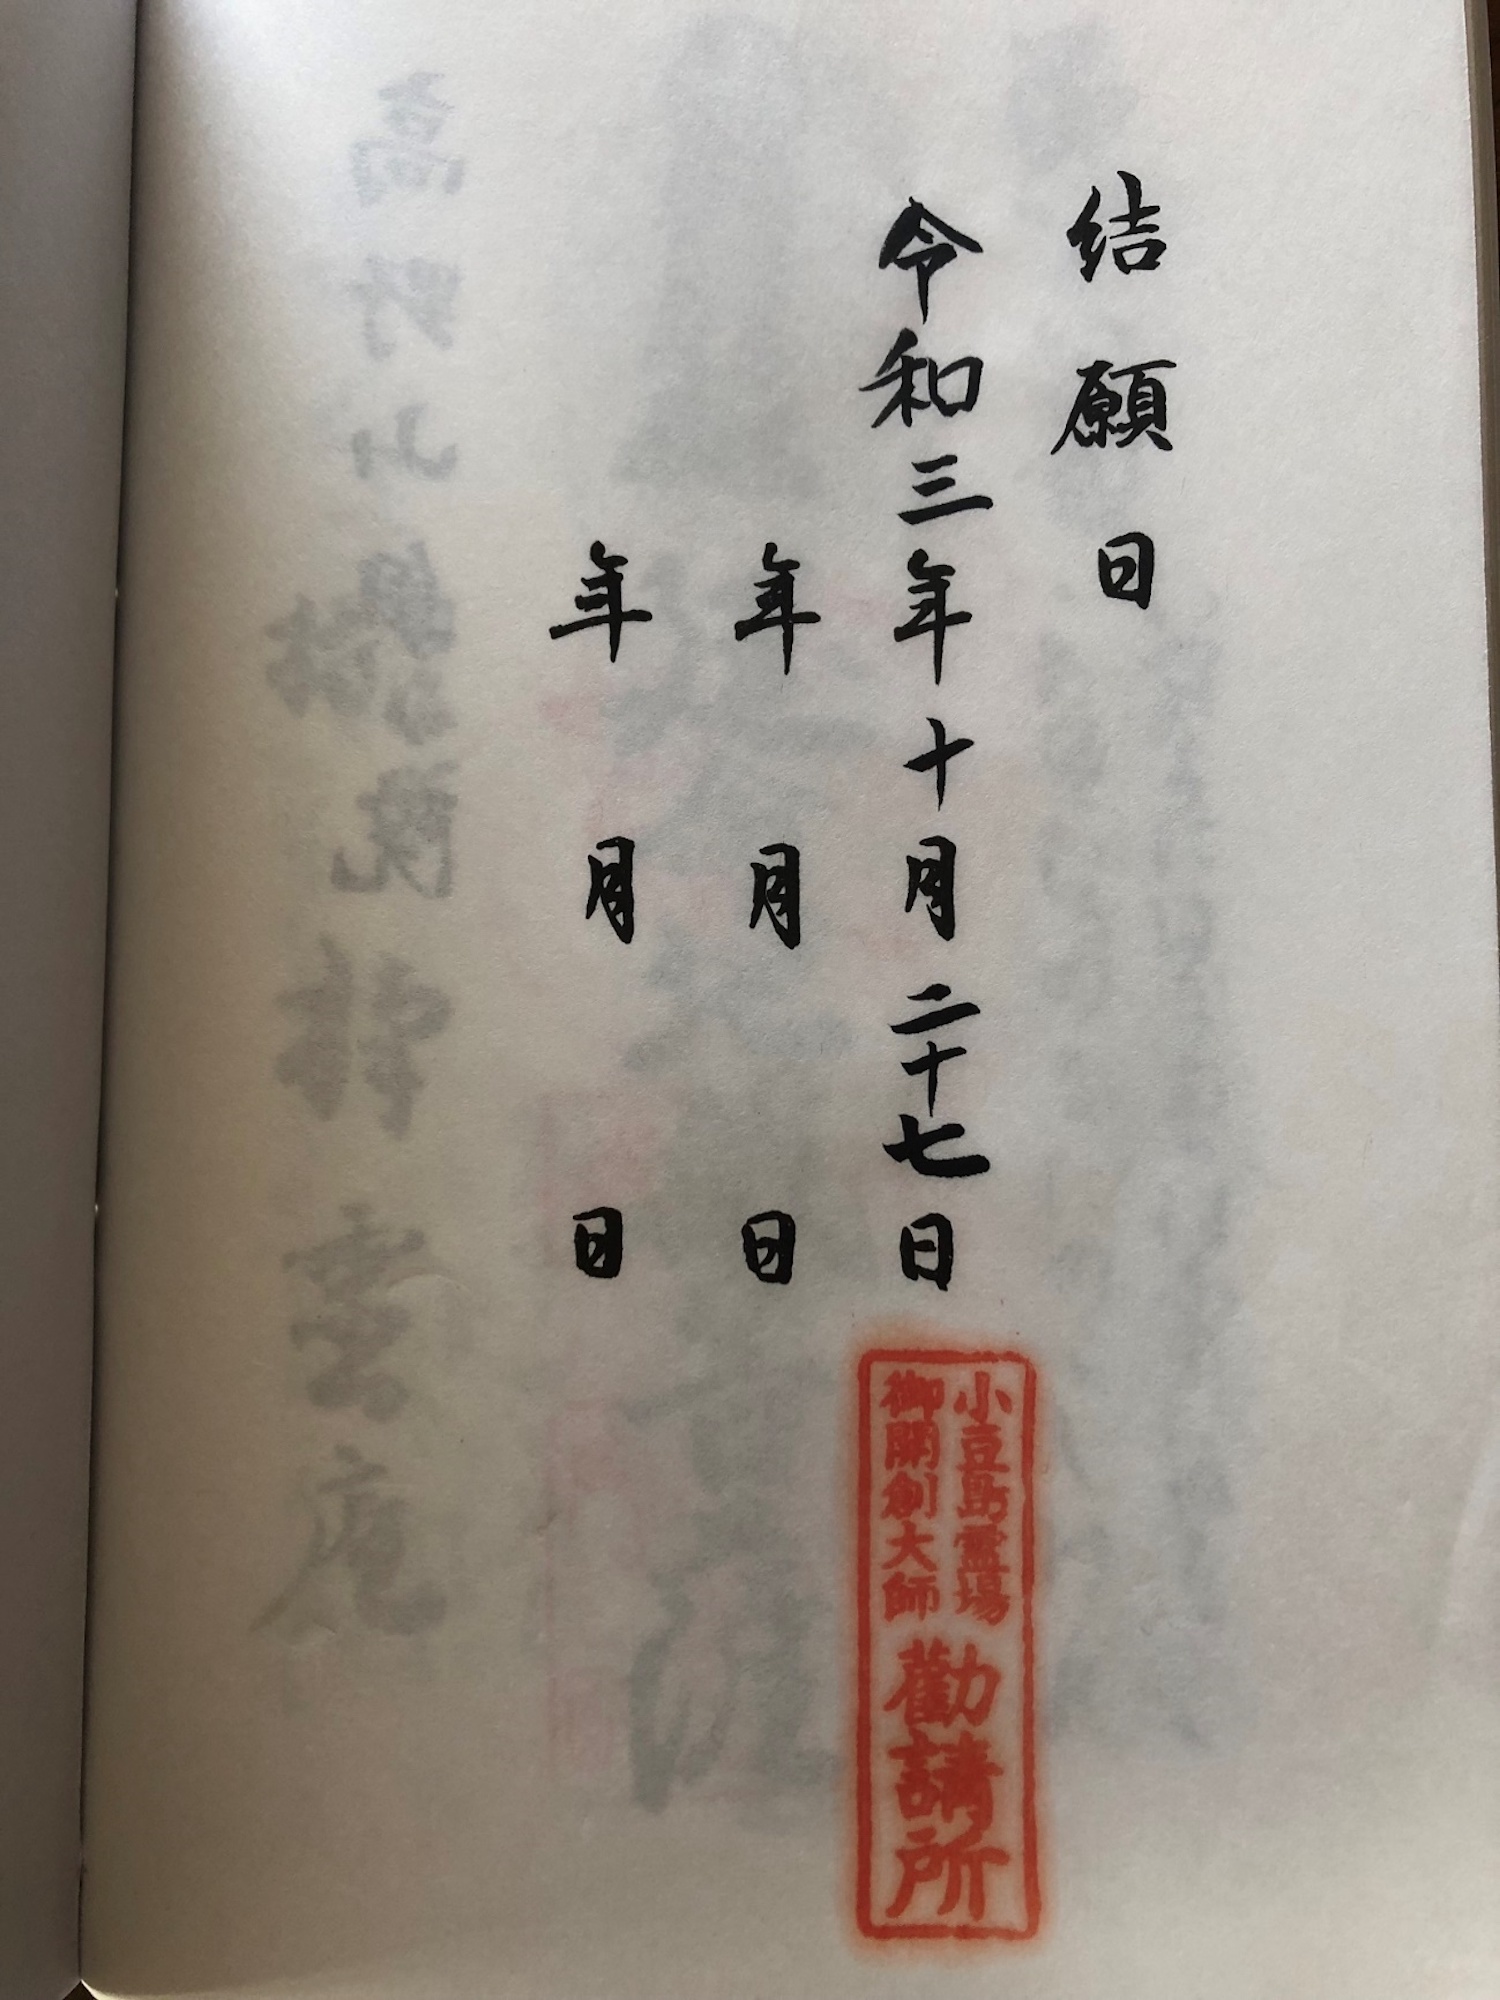 結願日
令和三年十月二十七日
年月日
年月日
小豆島霊場
御開創大師
勸請所